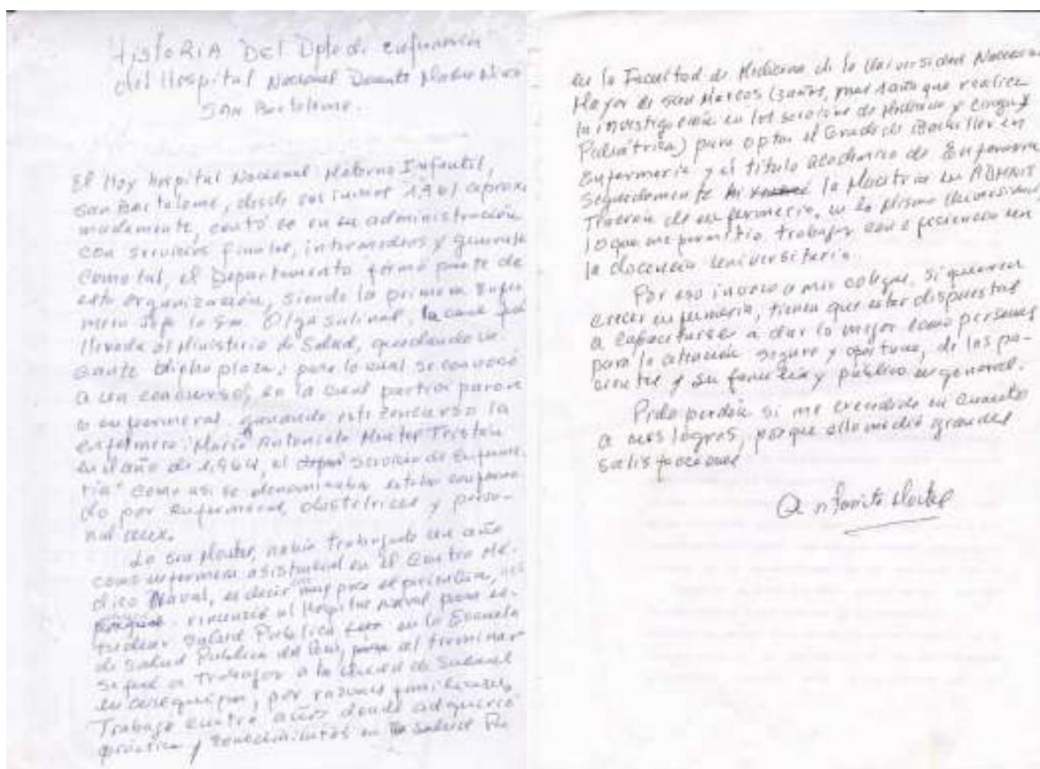 Historia Del Dpto de enfermería
del Hospital Nacional Docente Madre Niño
San Bartolomé.
El Hoy hospital Nacional Materno Infantil,
San Bartolomé, desde sus inicios 1961 aproxi
madamente, contó en su administración
con servicios finales, intermedios y generales
como tal, el Departamento formó parte de
esta organización, siendo la primera Enfer
mera Jefe la Sra. Olga Salinas, la cual fue
llevada al Ministerio de Salud, quedando va
cante dicha plaza, para lo cual se convocó
a un concurso, en la cual participaron
enfermeras, ganando este concurso la
enfermera: María Antonieta Tristán
en el año de 1,964, el servicio de Enferme
ría" como así se denominaba estaba conforma
do por enfermeras, obstetrices y perso-
nal aux.
La sra había trabajado un año
como enfermera asistencial en el Centro Mé-
dico Naval, es decir muy poco al principio,
renunció al Hospital naval para es-
tudiar Salud Pública en la Escuela
de Salud Pública del Perú, al terminar
se fue a trabajar a la ciudad de
en Arequipa, por razones familiares,
Trabajó cuatro años donde adquirió
práctica y conocimientos en salud Pú
en la Facultad de Medicina de la Universidad Nacional
Mayor de San Marcos (3 años, más 1 año que realicé
la investigación en los servicios de Medicina y Cirugía
Pediátrica) para optar el Grado de Bachiller en
Enfermería y el título académico de Enfermera
Seguidamente la Maestría en ADMINIS
Tración de enfermería, en la misma Universidad,
lo que me permitió trabajar con eficiencia en
la docencia Universitaria.
Por eso invoco a mis colegas, si quieren
crecer en enfermería, tienen que estar dispuestas
a capacitarse a dar lo mejor como personas
para la atención segura y oportuna, de los pa-
cientes y su familia y público en general.
Pido perdón si me he excedido en cuanto
a mis logros, porque ello me dió grandes
satisfacciones